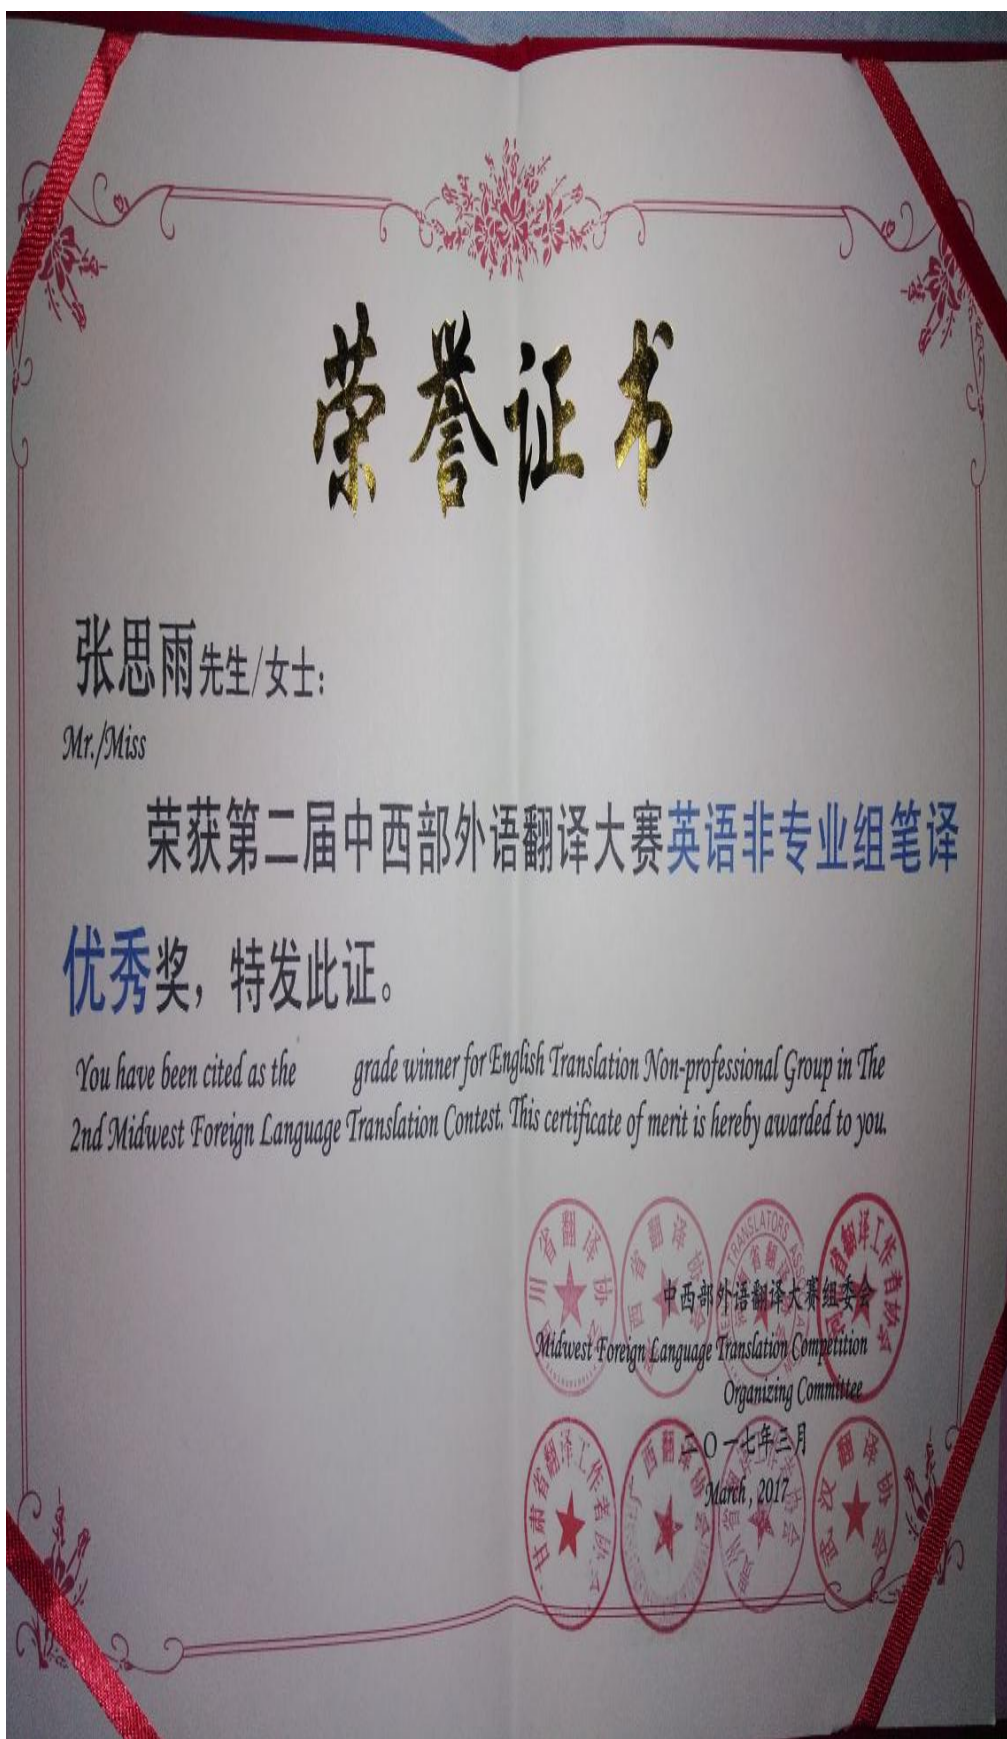 荣誉证书
张思雨先生/女士:
Mr./Miss
荣获第二届中西部外语翻译大赛英语非专业组笔译
优秀奖，特发此证。
You have been cited as the grade winner for English Translation Non-professional Group in The
2nd Midwest Foreign Language Translation Contest. This certificate of merit is hereby awarded to you.
中西部外语翻译大赛组委会
Midwest Foreign Language Translation Competition
Organizing Committee
二〇一七年三月
March , 2017
川省翻译协
西省翻译协会
TRANSLATORS
省翻译工作者协会
甘肃省翻译工作者协会
广西翻译协会
武汉翻译协会